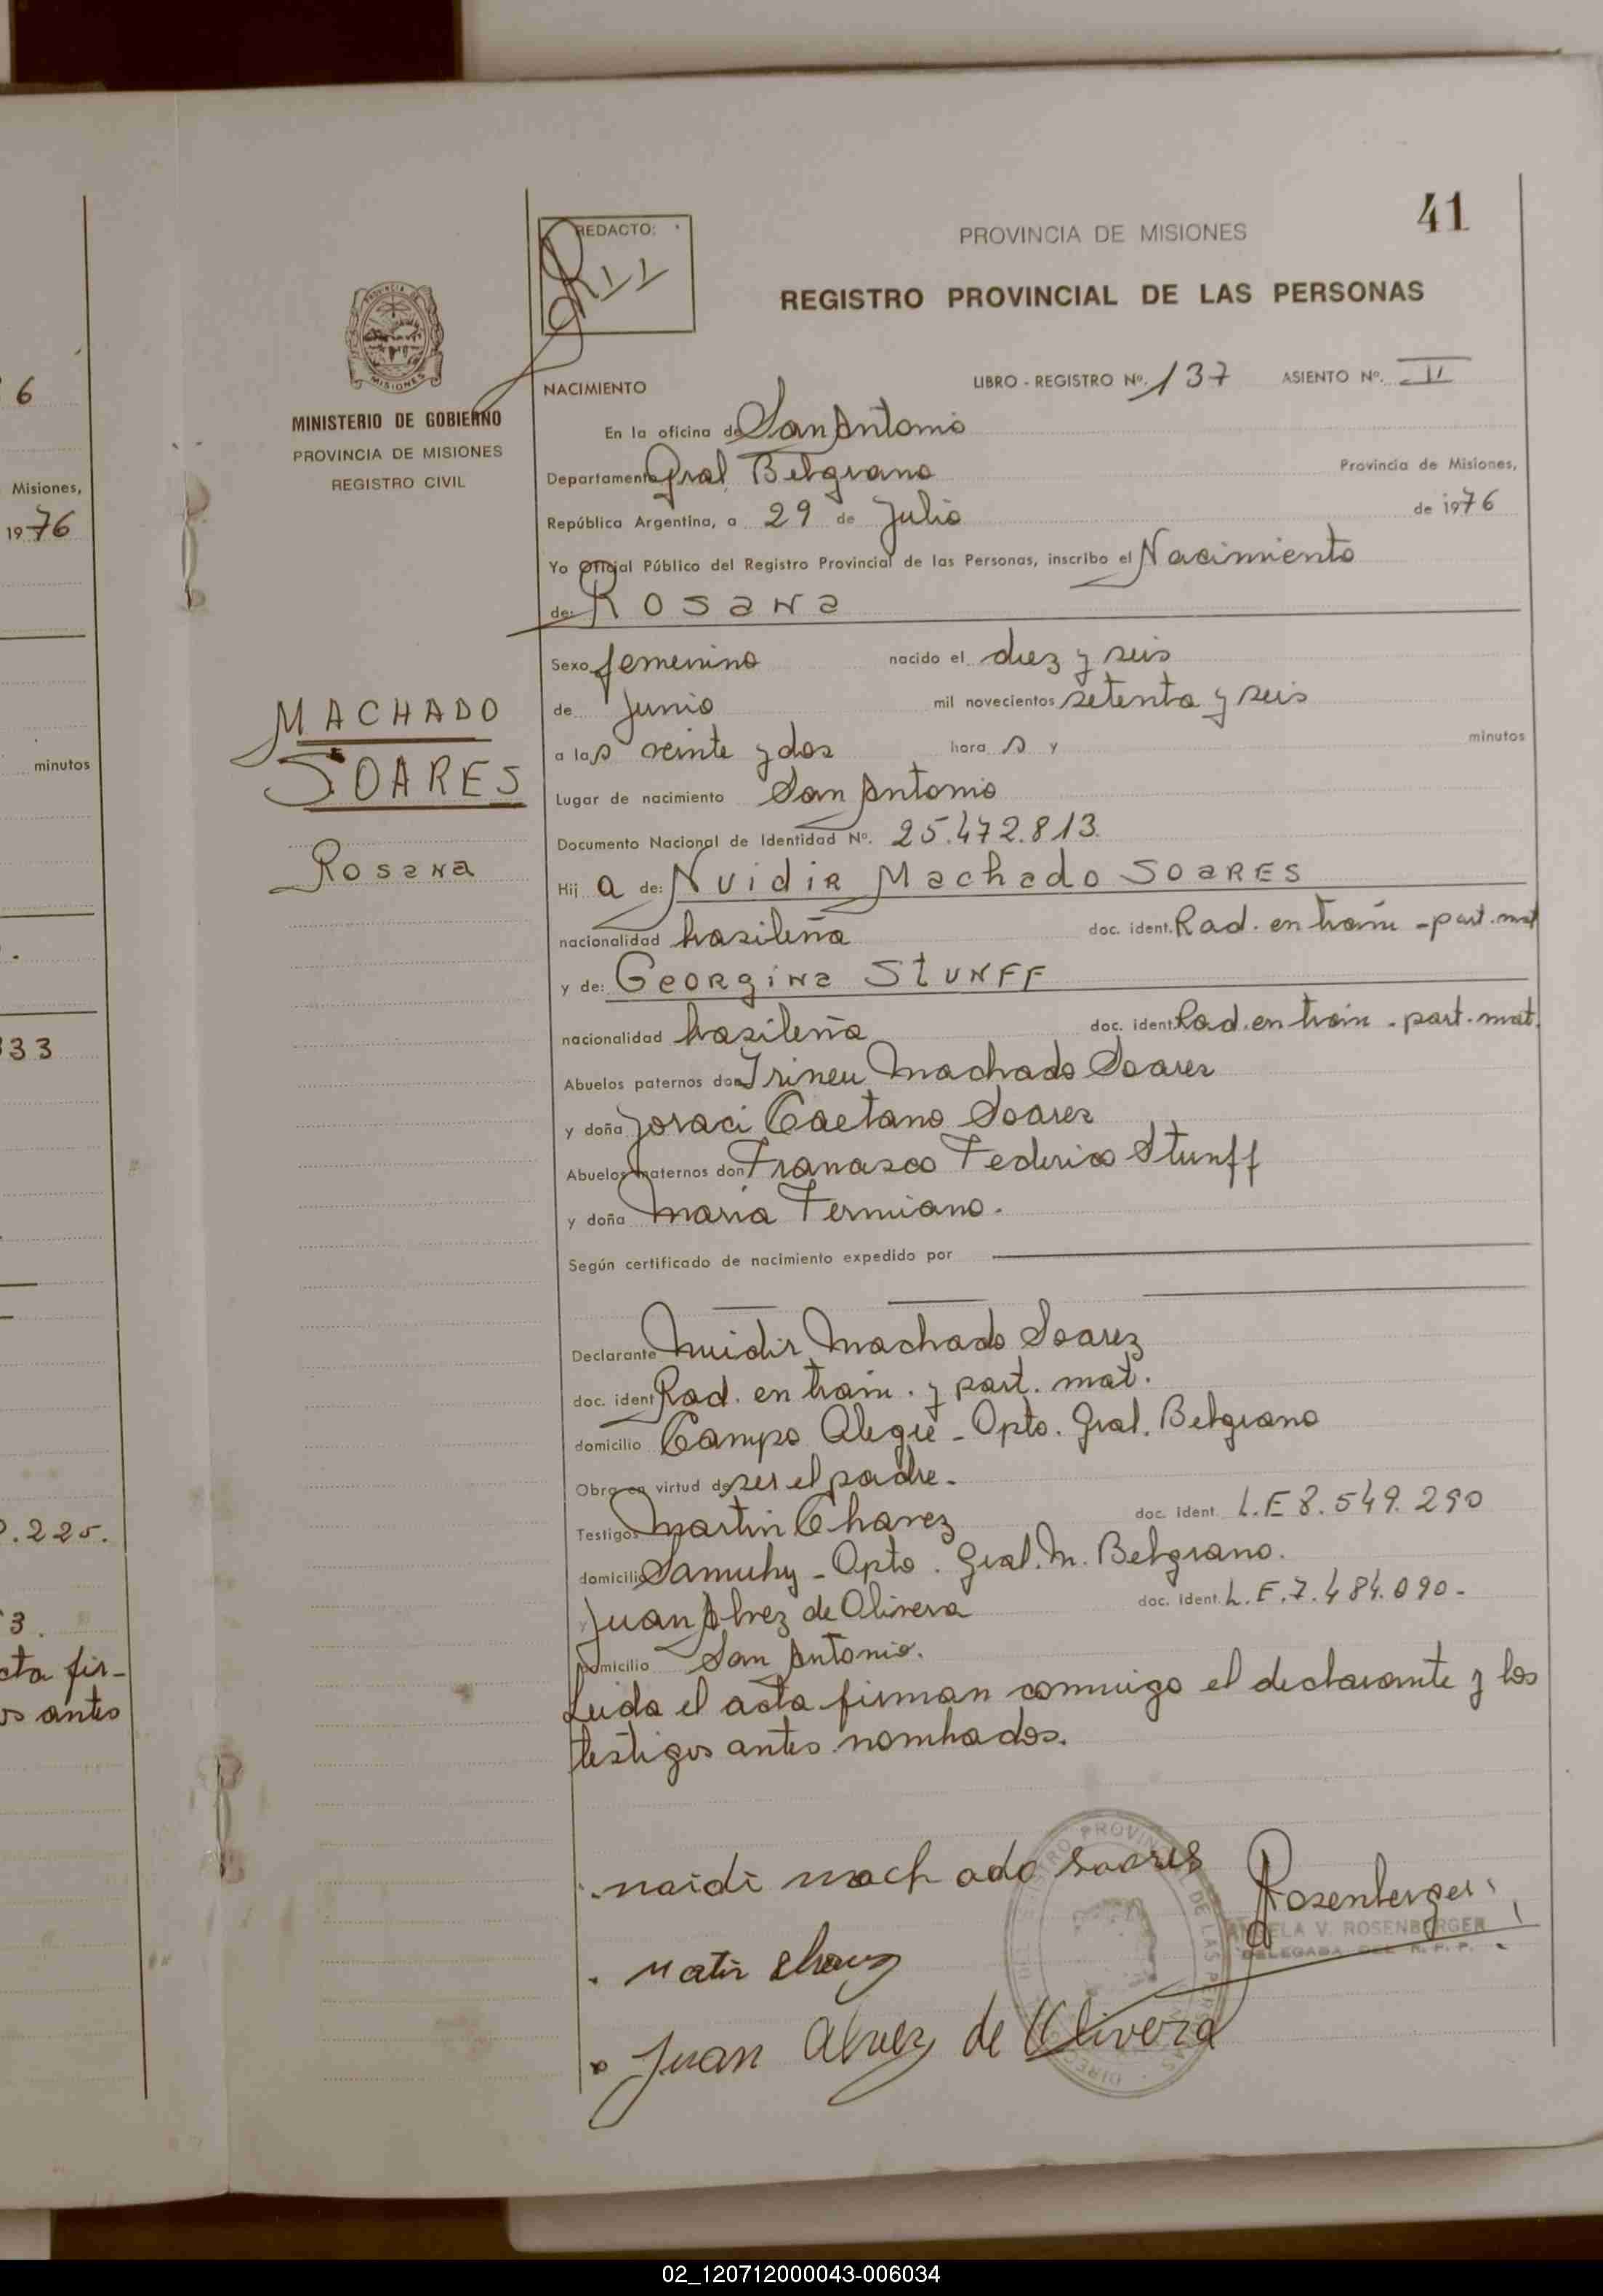 6
Misiones,
1976
minutos
33
.225.
3.
cta fir-
os antes
41
REDACTO:
PROVINCIA DE MISIONES
REGISTRO PROVINCIAL DE LAS PERSONAS
MISIONES
MINISTERIO DE GOBIERNO
PROVINCIA DE MISIONES
REGISTRO CIVIL
MACHADO
SOARES
Rosana
NACIMIENTO LIBRO - REGISTRO Nº. 137 ASIENTO Nº. II
En la oficina de San Antonio
Departamento Gral. Belgrano Provincia de Misiones,
República Argentina, a 29 de Julio de 1976
Yo Oficial Público del Registro Provincial de las Personas, inscribo el Nacimiento
de: Rosana
Sexo femenino nacido el diez y seis
de Junio mil novecientos setenta y seis
a las veinte y dos hora s y minutos
Lugar de nacimiento San Antonio
Documento Nacional de Identidad Nº. 25.472.813.
Hij a de: Nuidir Machado SOARES
nacionalidad brasileña doc. ident. Rad. en trám - part. mat
y de: Georgina Stunff
nacionalidad brasileña doc. ident. Rad. en trám - part. mat.
Abuelos paternos don Irineu Machado Soares
y doña Joraci Caetano Soares
Abuelos maternos don Francisco Federico Stunff
y doña María Fermiano.
Según certificado de nacimiento expedido por
Declarante Nuidir Machado Soarez
doc. ident Rad. en trám. y part. mat.
domicilio Campo Alegre - Dpto. Gral. Belgrano
Obra en virtud de ser el padre.
Testigos Martin Chavez doc. ident. L.E 8.549.290
domicilio Samuhy - Dpto. Gral. M. Belgrano.
y Juan Alvez de Olivera doc. ident. L.E.7.484.090-
Domicilio San Antonio.
Leida el acta firman conmigo el declarante y los
testigos antes nombrados.
naidi mach ado soares
Rosenberger
ANGELA V. ROSENBERGER
DELEGADA DEL R.P.P.
Juan Alvez de Olivera
02_120712000043-006034